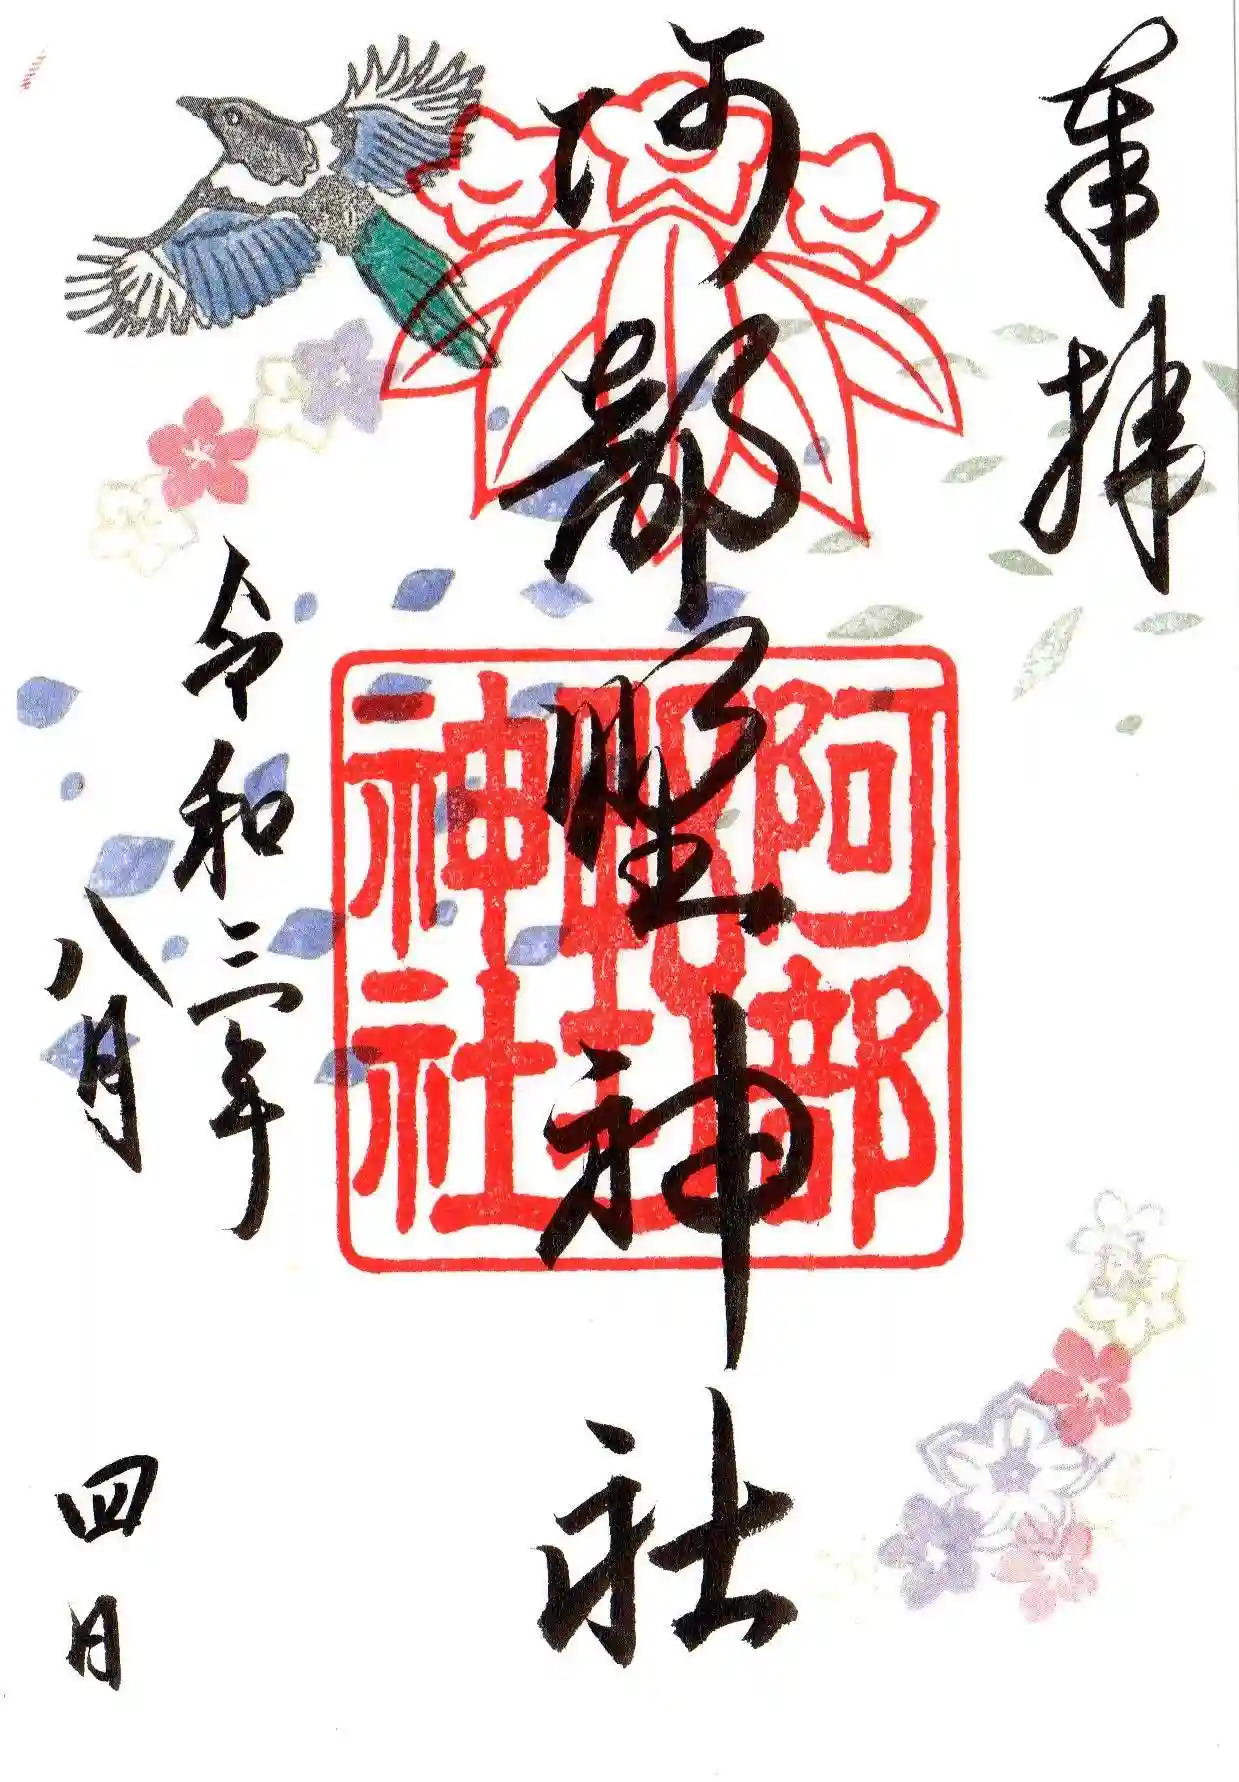 奉拝
阿部野神社
阿部野神社
令和三年
八月四日